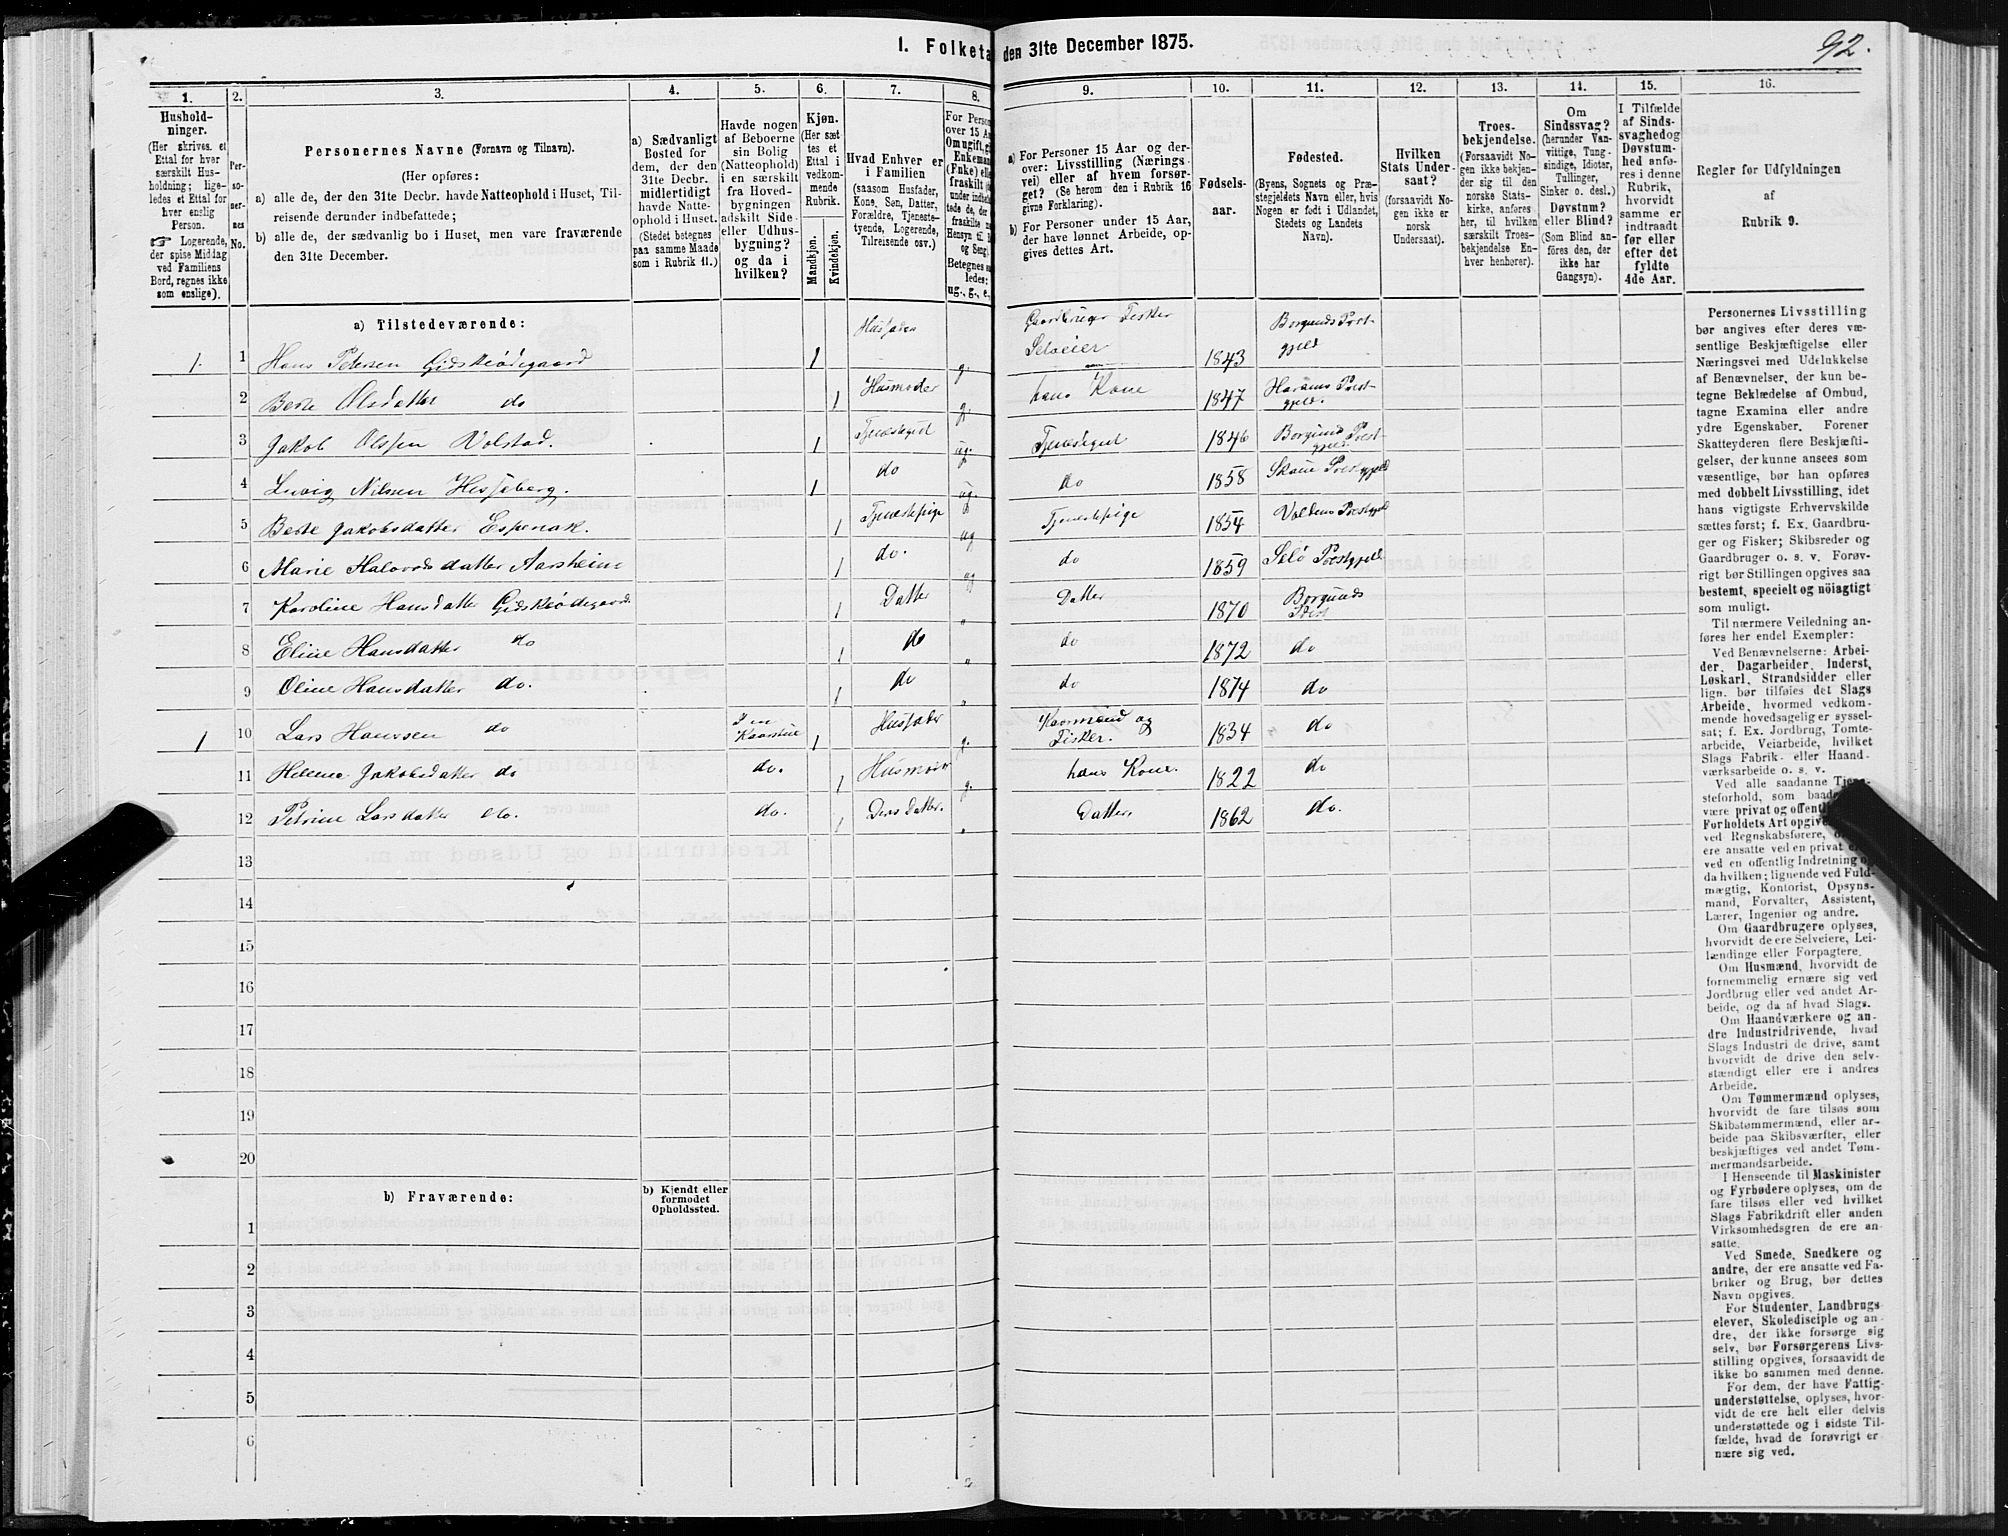 92.
1. Folketa
den 31te December 1875.
1.
Hushold-
ninger.
(Her skrives. et
Ettal for hver
særskilt Hus-
holdning; lige-
ledes et Ettal for
hver enslig
Person.
☞ Logerende,
der spise Middag
ved Familiens
Bord, regnes ikke
som enslige).
2.
Per-
so-
ner-
nes
No.
3.
Personernes Navne (Fornavn og Tilnavn).
(Her opføres:
a) alle de, der den 31te Decbr. havde Natteophold i Huset, Til-
reisende derunder indbefattede;
b) alle de, der sædvanlig bo i Huset, men vare fraværende
den 31te December.
4.
a) Sædvanligt
Bosted for
dem, der den
31te Decbr.
midlertidigt
havde Natte-
ophold i Huset.
(Stedet betegnes
paa samme Maade
som i Rubrik 11.)
5.
Havde nogen
af Beboerne
sin Bolig
(Natteophold)
i en særskilt
fra Hoved-
bygningen
adskilt Side-
eller Udhus-
bygning?
og da i
hvilken?
6.
Kjøn.
(Her sæt
tes et
Ettal i
vedkom-
mende
Rubrik.
Mandkjøn.
Kvindekjøn.
7.
Hvad Enhver er
i Familien
(saasom Husfader,
Kone, Søn, Datter,
Forældre, Tjeneste-
tyende, Logerende,
Tilreisende osv.)
8.
For Person
over 15 Aa
Om ugift, gi
Enkeman
(Enke) elle
fraskilt
under indbe
tede de, der
fraskilte
Hensyn til
og Seng.
Betegnes
ledes:
ug., g., e.,
9.
a) For Personer 15 Aar og der-
over: Livsstilling (Nærings
vei) eller af hvem forsør-
get? (Se herom den i Rubrik 16
givne Forklaring).
b) For Personer under 15 Aar,
der have lønnet Arbeide, op-
gives dettes Art.
10.
Fødsels-
aar.
11.
Fødested.
(Byens, Sognets og Præ-
stegjeldets Navn eller, hvis
Nogen er født i Udlandet,
Stedets og Landets
Navn).
12.
Hvilken
Stats Under-
saat?
(forsaavidt No-
gen ikke er
norsk
Undersaat).
13.
Troes-
bekjendelse.
(Forsaavidt No-
gen ikke bekjen-
der sig til den
norske Stats-
kirke, anføres
her, til hvilken
særskilt Troes-
bekjendelse En-
hver henhører).
14.
Om
Sindssvag?
(herunder Van-
vittige, Tung-
sindige, Idioter,
Tullinger,
Sinker o. desl.)
Døvstum?
eller Blind?
(Som Blind an-
føres den, der
ikke har
Gangsyn).
15.
I Tilfælde
af Sinds-
svaghed og
Døvstum-
hed anfø-
res i denne
Rubrik,
hvorvidt
samme er
indtraadt
før eller
efter det
fyldte
4de Aar.
16.
Regler for Udfyldningen
af
Rubrik 9.
a) Tilstedeværende:
1. 1 Hans Petersen Gidskeødegaard 1 Husfader g. Gaardbruger Fisker Selveier 1843 Borgunds Prst-gjeld
2 Berte Olsdatter do 1 Husmoder g. hans Kone 1847 Harams Prest-gjeld.
3 Jakob Olssen Volstad. 1 Tjenestegut ug. Tjenestegut 1846 Borgund Prest-gjeld
4 Luvig Nilsen Hesseberg. 1 do ug. do 1858 Skoue Prestegjeld
5 Berte Jakobsdatter Espenak. 1 Tjenestepige ug Tjenestepige 1854 Voldens Prestgjeld
6 Marie Halvorsdatter Aarsheim 1 do. ug do 1859 Selö Prestgjeld
7 Karoline Hansdatter Gidskeødegaard 1 Datter " Datter 1870 Borgunds Prest
8 Eline Hansdatter do 1 do " do 1872 do
9 Oline Hansdatter do. 1 do " do 1874 do
1 10 Lars Hanssen do I en Kaarstue 1 Husfader g. Kaarmand og Fisker. 1834 do
11 Hellene Jakobsdatter do do. 1 Husmoder g. hans Kone. 1822 do
12 Petrine Larsdatter do. do. 1 Deres Datter. " Datter. 1862 do.
13
14
15
16
17
18
19
20
b) Fraværende:
b) Kjendt eller
formodet
Opholdssted.
1
2
3
4
5
6
Personernes Livsstilling
bør angives efter deres væ-
sentlige Beskjæftigelse eller
Næringsvei med Udelukkelse
af Benævnelser, der kun be-
tegne Beklædelse af Ombud,
tagne Examina eller andre
ydre Egenskaber. Forener
Skatteyderen flere Beskjæfti-
gelser, der kunne ansees som
væsentlige, bør han opføres
med dobbelt Livsstilling, idet
hans vigtigste Erhvervskilde
sættes først; f. Ex. Gaardbru-
ger og Fisker; Skibsreder og
Gaardbruger o. s. v. Forøv-
rigt bør Stillingen opgives saa
bestemt, specielt og nöiagtigt
som muligt.
Til nærmere Veiledning an-
føres her endel Exempler:
Ved Benævnelserne: Arbei-
der, Dagarbeider, Inderst,
Løskarl, Strandsidder eller
lign. bør tilføies det Slags
Arbeide, hvormed vedkom-
mende hovedsagelig er syssel-
sat; f. Ex. Jordbrug, Tomte-
arbeide, Veiarbeide, hvilket
Slags Fabrik- eller Haand-
værksarbeide o. s. v.
Ved alle saadanne Tjene-
steforhold, som baade
være privat og offentl
Forholdets Art opgive
ved Regnskabsførere,
ere ansatte ved en privat
ved en offentlig Indretning og
da hvilken; lignende ved Fuld-
mægtig, Kontorist, Opsyns-
mand, Forvalter, Assistent,
Lærer, Ingeniør og andre.
Om Gaardbrugere oplyses,
hvorvidt de ere Selveiere, Lei-
lændinge eller Forpagtere.
Om Husmænd, hvorvidt de
fornemmelig ernære sig ved
Jordbrug eller ved andet Ar-
beide, og da af hvad Slags.
Om Haandværkere og an-
dre Industridrivende, hvad
Slags Industri de drive, samt
hvorvidt de drive den selv-
stændigt eller ere i andres
Arbeide.
Om Tømmermænd oplyses,
hvorvidt de fare tilsøs som
Skibstømmermænd, eller ar-
beide paa Skibsværfter, eller
beskjæftiges ved andet Tøm-
mermandsarbeide.
I Henseende til Maskinister
og Fyrbødere oplyses, om de
fare tilsøs eller ved hvilket
Slags Fabrikdrift eller anden
Virksomhedsgren de ere an-
satte.
Ved Smede, Snedkere og
andre, der ere ansatte ved Fa-
briker og Brug, bør dettes
Navn opgives.
For Studenter, Landbrugs-
elever, Skoledisciple og an-
dre, der ikke forsørge sig
selv, bør Forsørgerens Livs-
stilling opgives, forsaavidt de
ikke bo sammen med denne.
For dem, der have Fattig-
understøttelse, oplyses, hvor-
vidt de ere helt eller delvis
understøttede og i sidste Til-
fælde, hvad de forøvrigt er-
nære sig ved.